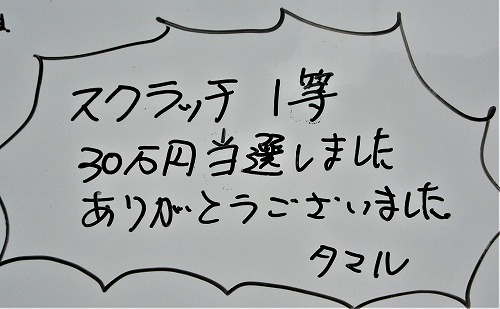 スクラッチ 1等
30万円当選しました
ありがとうございました
タマル